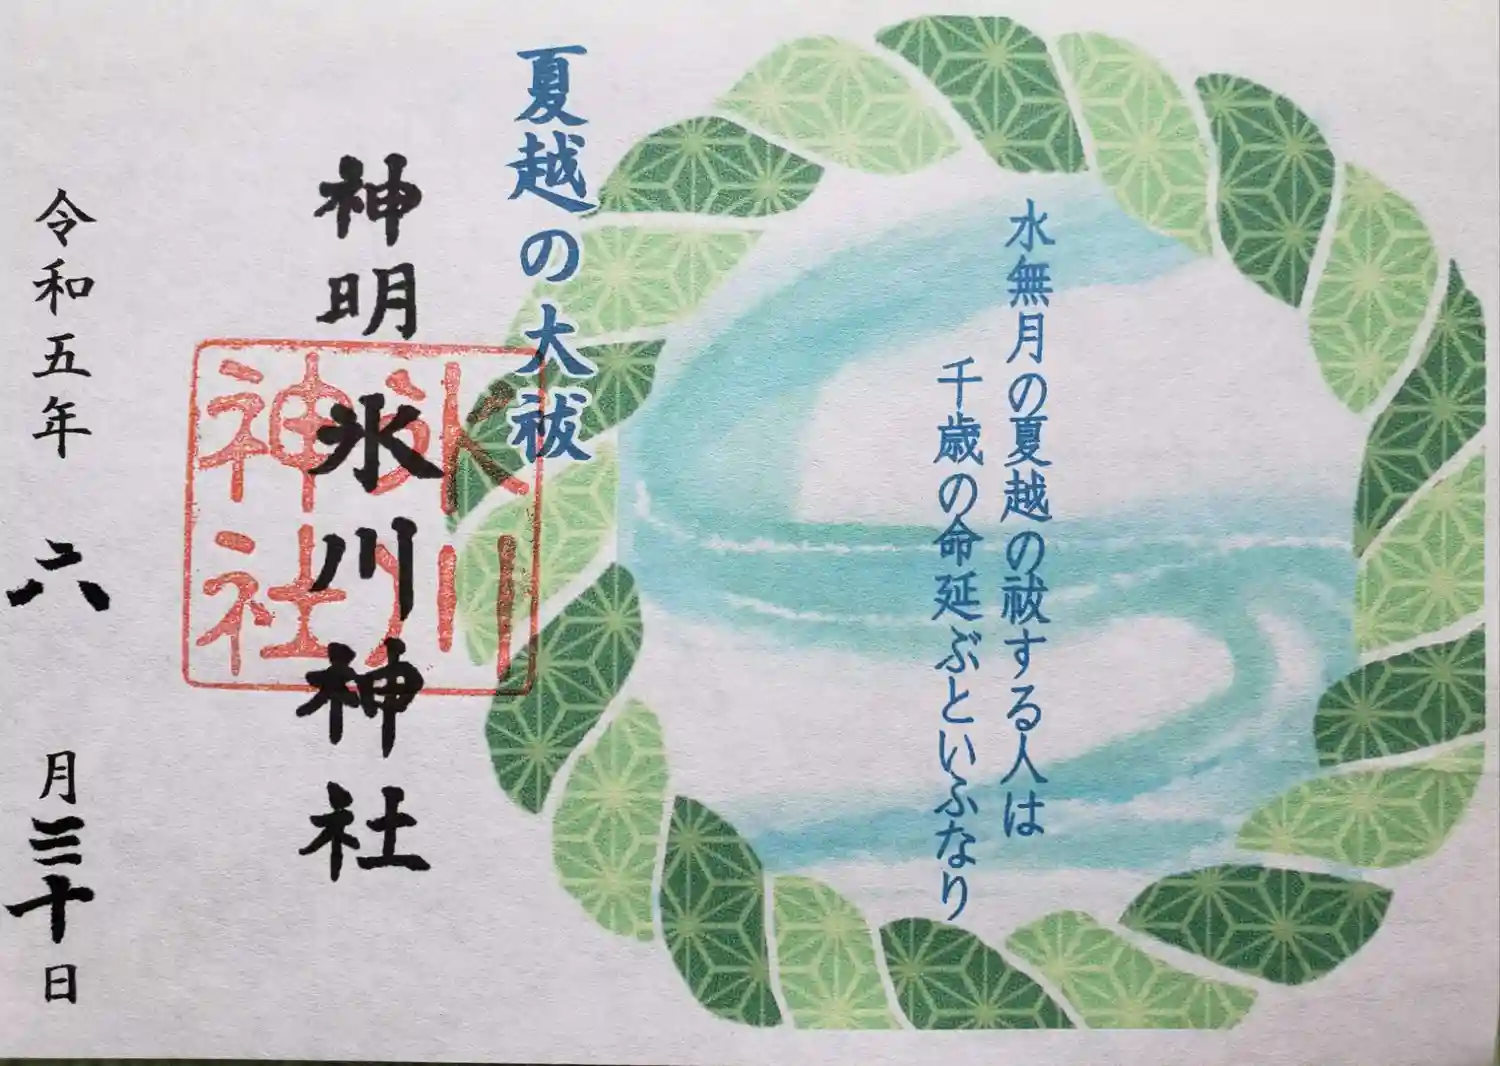 水無月の夏越の祓する人は
千歳の命延ぶといふなり
夏越の大祓
神明氷川神社
氷川
神社
令和五年 六月三十日